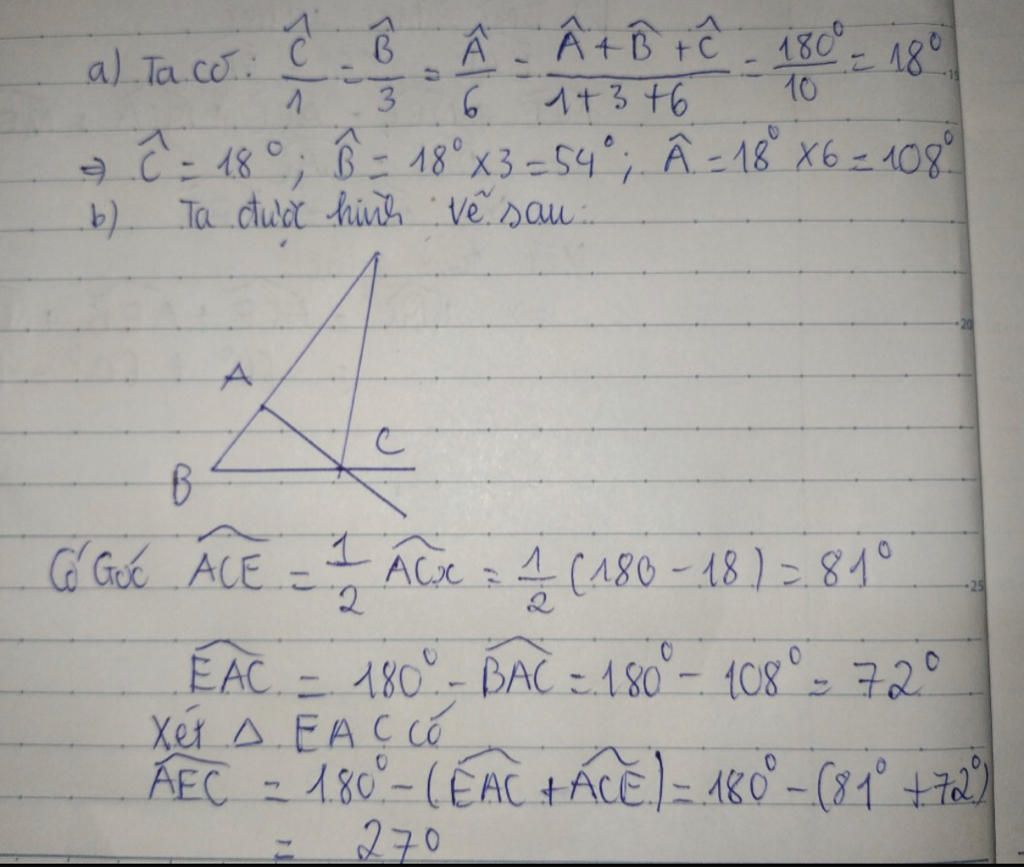 a) Ta có: Ĉ/1 = B̂/3 = Â/6 = (Â + B̂ + Ĉ)/(1+3+6) = 180°/10 = 18°
⇒ Ĉ = 18°; B̂ = 18° x3 = 54°; Â = 18° x6 = 108°
b) Ta được hình vẽ sau:
A
C
B
Có Góc ACE = 1/2 ACx = 1/2 (180 - 18) = 81°
EAC = 180° - BAC = 180° - 108° = 72°
Xét Δ EAC có
AEC = 180° - (EAC + ACE) = 180° - (81° + 72°)
= 270